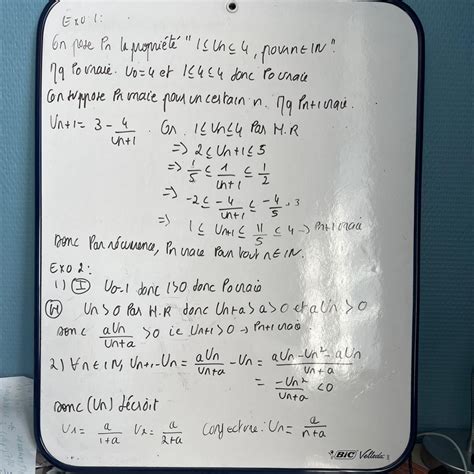 Exo 1:
On pose Pn la propriété "1 ≤ Un ≤ 4, pour n ∈ IN".
Mq Po vraie. U0=4 et 1≤4≤4 donc Po vraie
On suppose Pn vraie pour un certain n. Mq Pn+1 vraie.
Un+1 = 3 - 4/(Un+1) . On 1 ≤ Un ≤ 4 Par H.R
=> 2 ≤ Un+1 ≤ 5
=> 1/5 ≤ 1/(Un+1) ≤ 1/2
=> -2 ≤ -4/(Un+1) ≤ -4/5 +3
=> 1 ≤ Un+1 ≤ 11/5 ≤ 4 → Pn+1 vraie
Donc Par récurrence, Pn vraie Pour tout n ∈ IN.
Exo 2:
1) (I) U0=1 donc 1>0 donc Po vraie
(H) Un > 0 Par H.R donc Un+a > a > 0 et aUn > 0
Donc aUn/(Un+a) > 0 ie Un+1 > 0 → Pn+1 vraie
2) ∀n ∈ IN, Un+1 - Un = aUn/(Un+a) - Un = (aUn - Un² - aUn)/(Un+a)
= -Un²/(Un+a) < 0
Donc (Un) décroit
U1 = a/(1+a) U2 = a/(2+a) Conjecture: Un = a/(n+a)
BIC Velleda